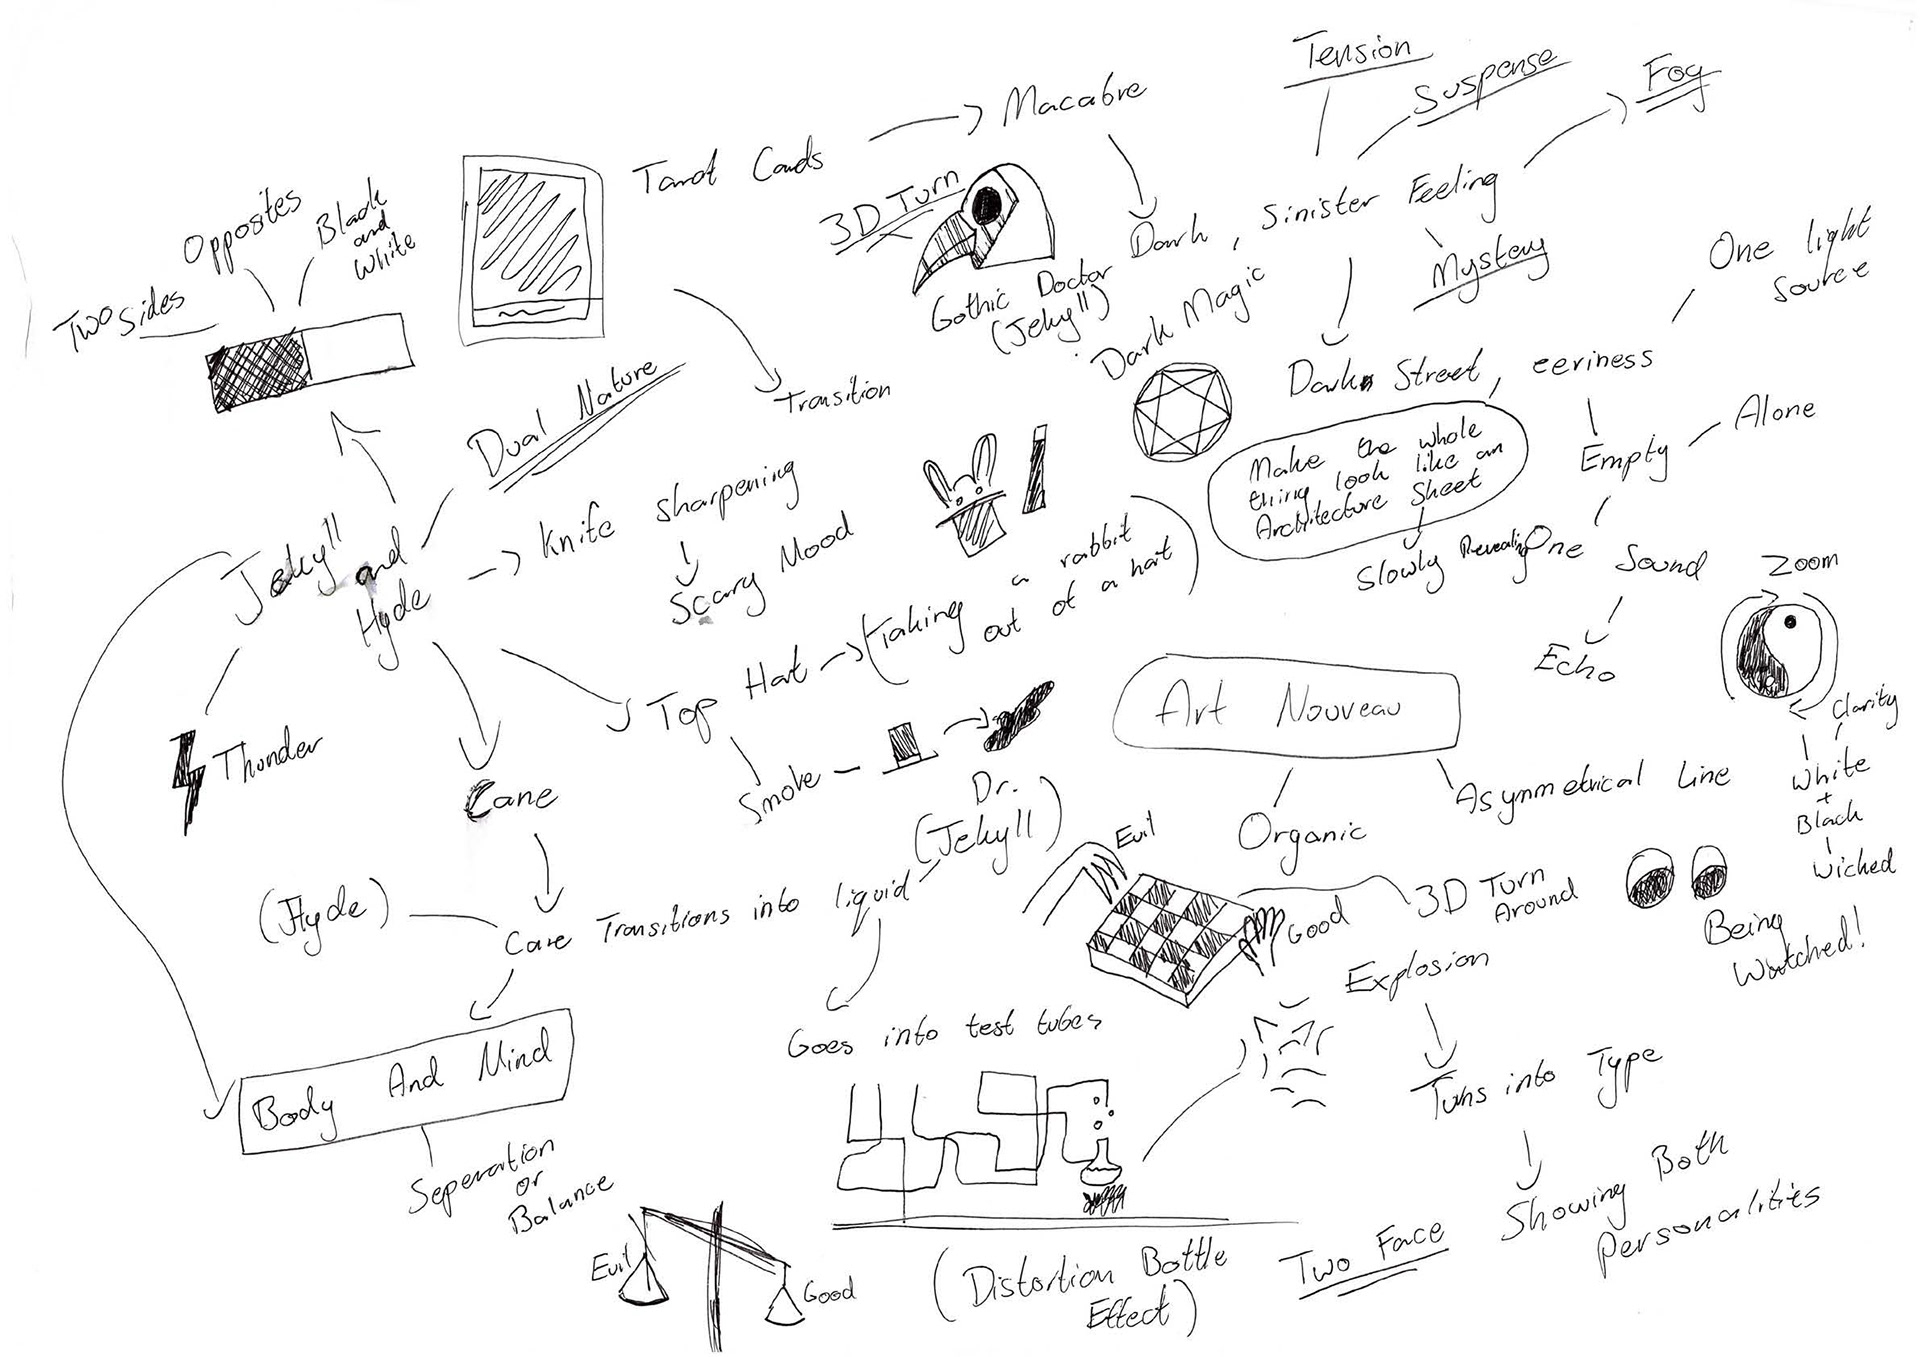 Tension
Suspense
Fog
Macabre
Tarot Cards
3D Turn
Dark, Sinister Feeling
Mystery
Gothic Doctor
(Jekyll)
Dark Magic
One light
Source
Opposites
Black
and
White
Two Sides
Dual Nature
Transition
Dark Street, eeriness
Alone
Empty
Make the whole
thing look like an
Architecture Sheet
Slowly Revealing
One Sound
Echo
Zoom
Clarity
White
+
Black
Wicked
Jekyll
and
Hyde
Knife sharpening
Scary Mood
Top Hat
(Taking a rabbit
out of a hat)
Smoke
Thunder
Cane
Art Nouveau
Asymmetrical Line
Organic
Dr.
(Jekyll)
Evil
Good
3D Turn
Around
Being
Watched!
(Hyde)
Cane Transitions into liquid
Explosion
Goes into test tubes
Turns into Type
Body And Mind
Seperation
or
Balance
Showing Both
Personalities
Evil
Good
(Distortion Bottle
Effect)
Two Face